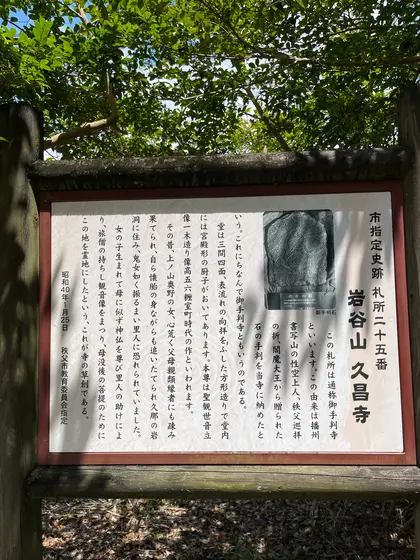 市指定史跡 札所二十五番
岩谷山 久昌寺
この札所は通称御手判寺
といいます。この由来は播州
書写山の性空上人、秩父巡拝
の折、閻魔大王から贈られた
石の手判を当寺に納めたと
御手判石
いう。これにちなんで御手判寺ともいうのである。
堂は三間四面、表流れの向拝をふした方形造りで堂内
には宮殿形の厨子がおいてあります。本尊は聖観世音立
像一木造り像高五六糎室町時代の作といわれます。
その昔、上ノ山奥野の女、心荒く父母親類縁者にも疎み
果てられ、自ら懐胎の身ながらも追いたてられ久那の岩
洞に住み、鬼女如く振るまい里人に恐れられていました。
女の子生まれて母に似ず神仏を尊び里人の助けによ
り、旅僧の持ちし観音像をまつり、母没後の菩提のために
この地を霊地にしたという。これが寺の草創である。
昭和40年1月25日 秩父市教育委員会指定